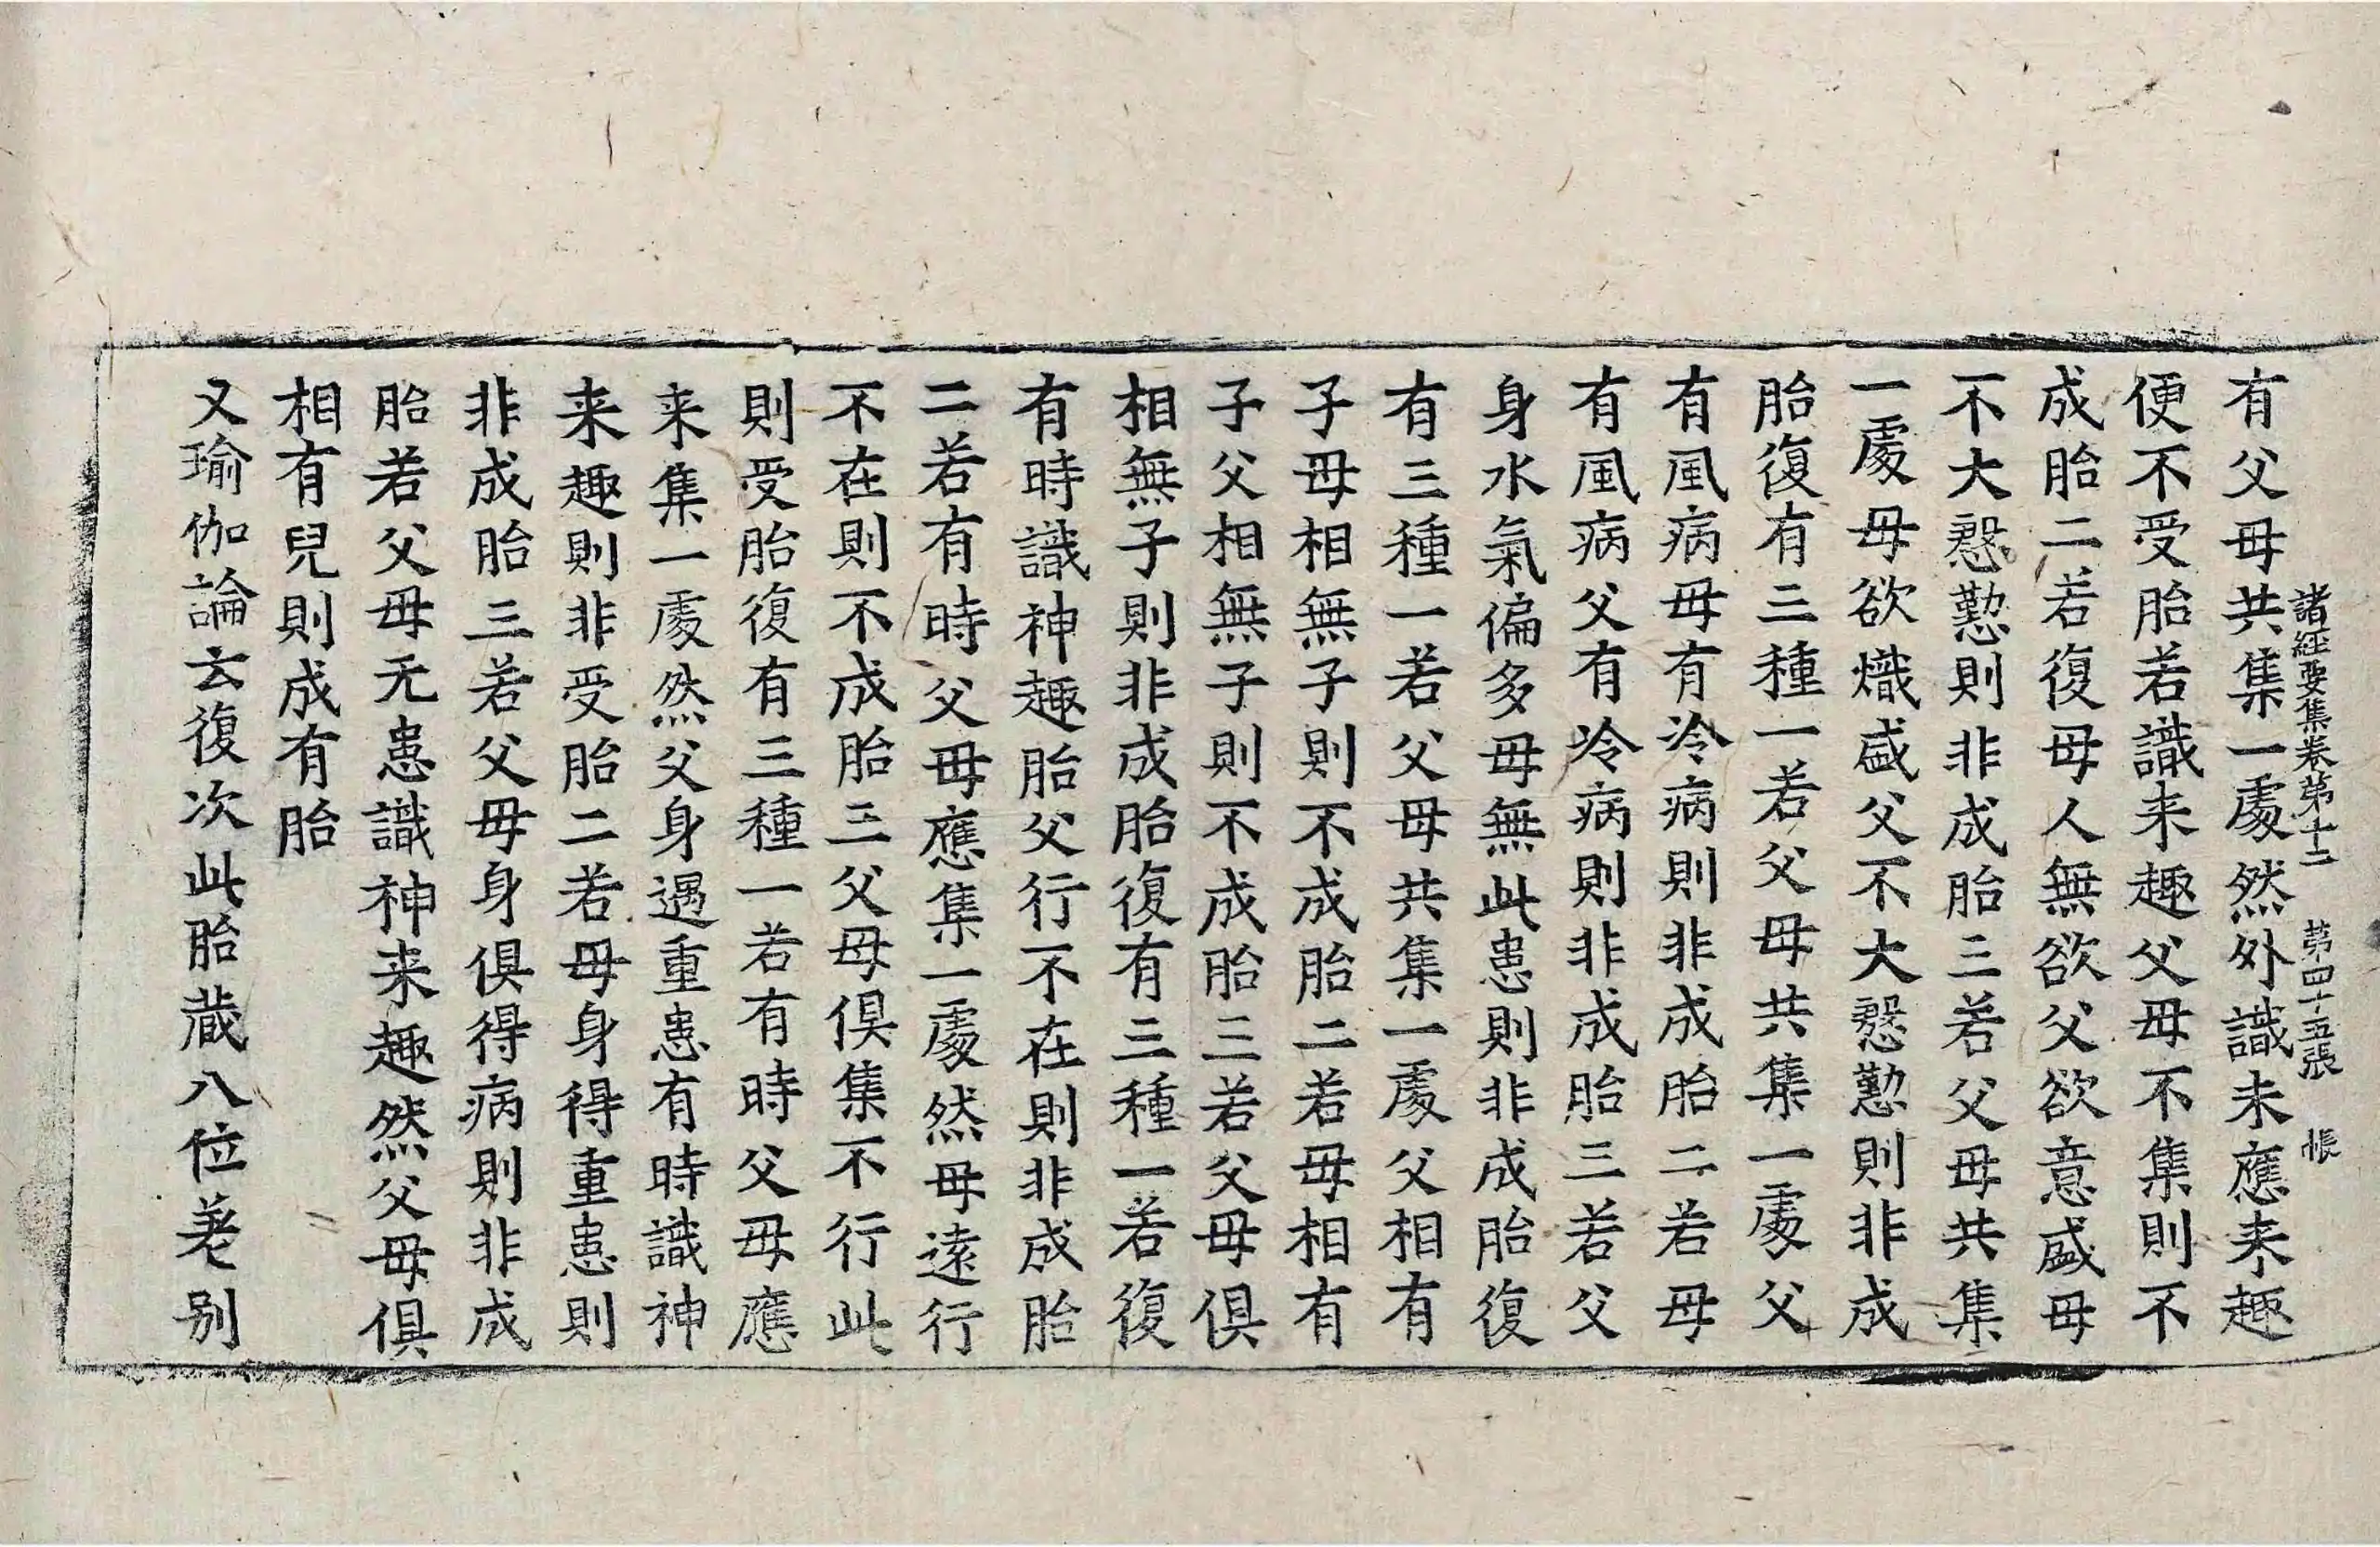 諸経要集卷第十二 第四十五張 悵
有父母共集一處然外識未應来趣
便不受胎若識来趣父母不集則不
成胎二若復母人無欲父欲意盛母
不大慇懃則非成胎三若父母共集
一處母欲熾盛父不大慇懃則非成
胎復有三種一若父母共集一處父
有風病母有冷病則非成胎二若母
有風病父有冷病則非成胎三若父
身水氣偏多母無此患則非成胎復
有三種一若父母共集一處父相有
子母相無子則不成胎二若母相有
子父相無子則不成胎三若父母俱
相無子則非成胎復有三種一若復
有時識神趣胎父行不在則非成胎
二若有時父母應集一處然母遠行
不在則不成胎三父母俱集不行此
則受胎復有三種一若有時父母應
来集一處然父身遇重患有時識神
来趣則非受胎二若母身得重患則
非成胎三若父母身俱得病則非成
胎若父母无患識神来趣然父母俱
相有兒則成有胎
又瑜伽論云復次此胎蔵八位差别